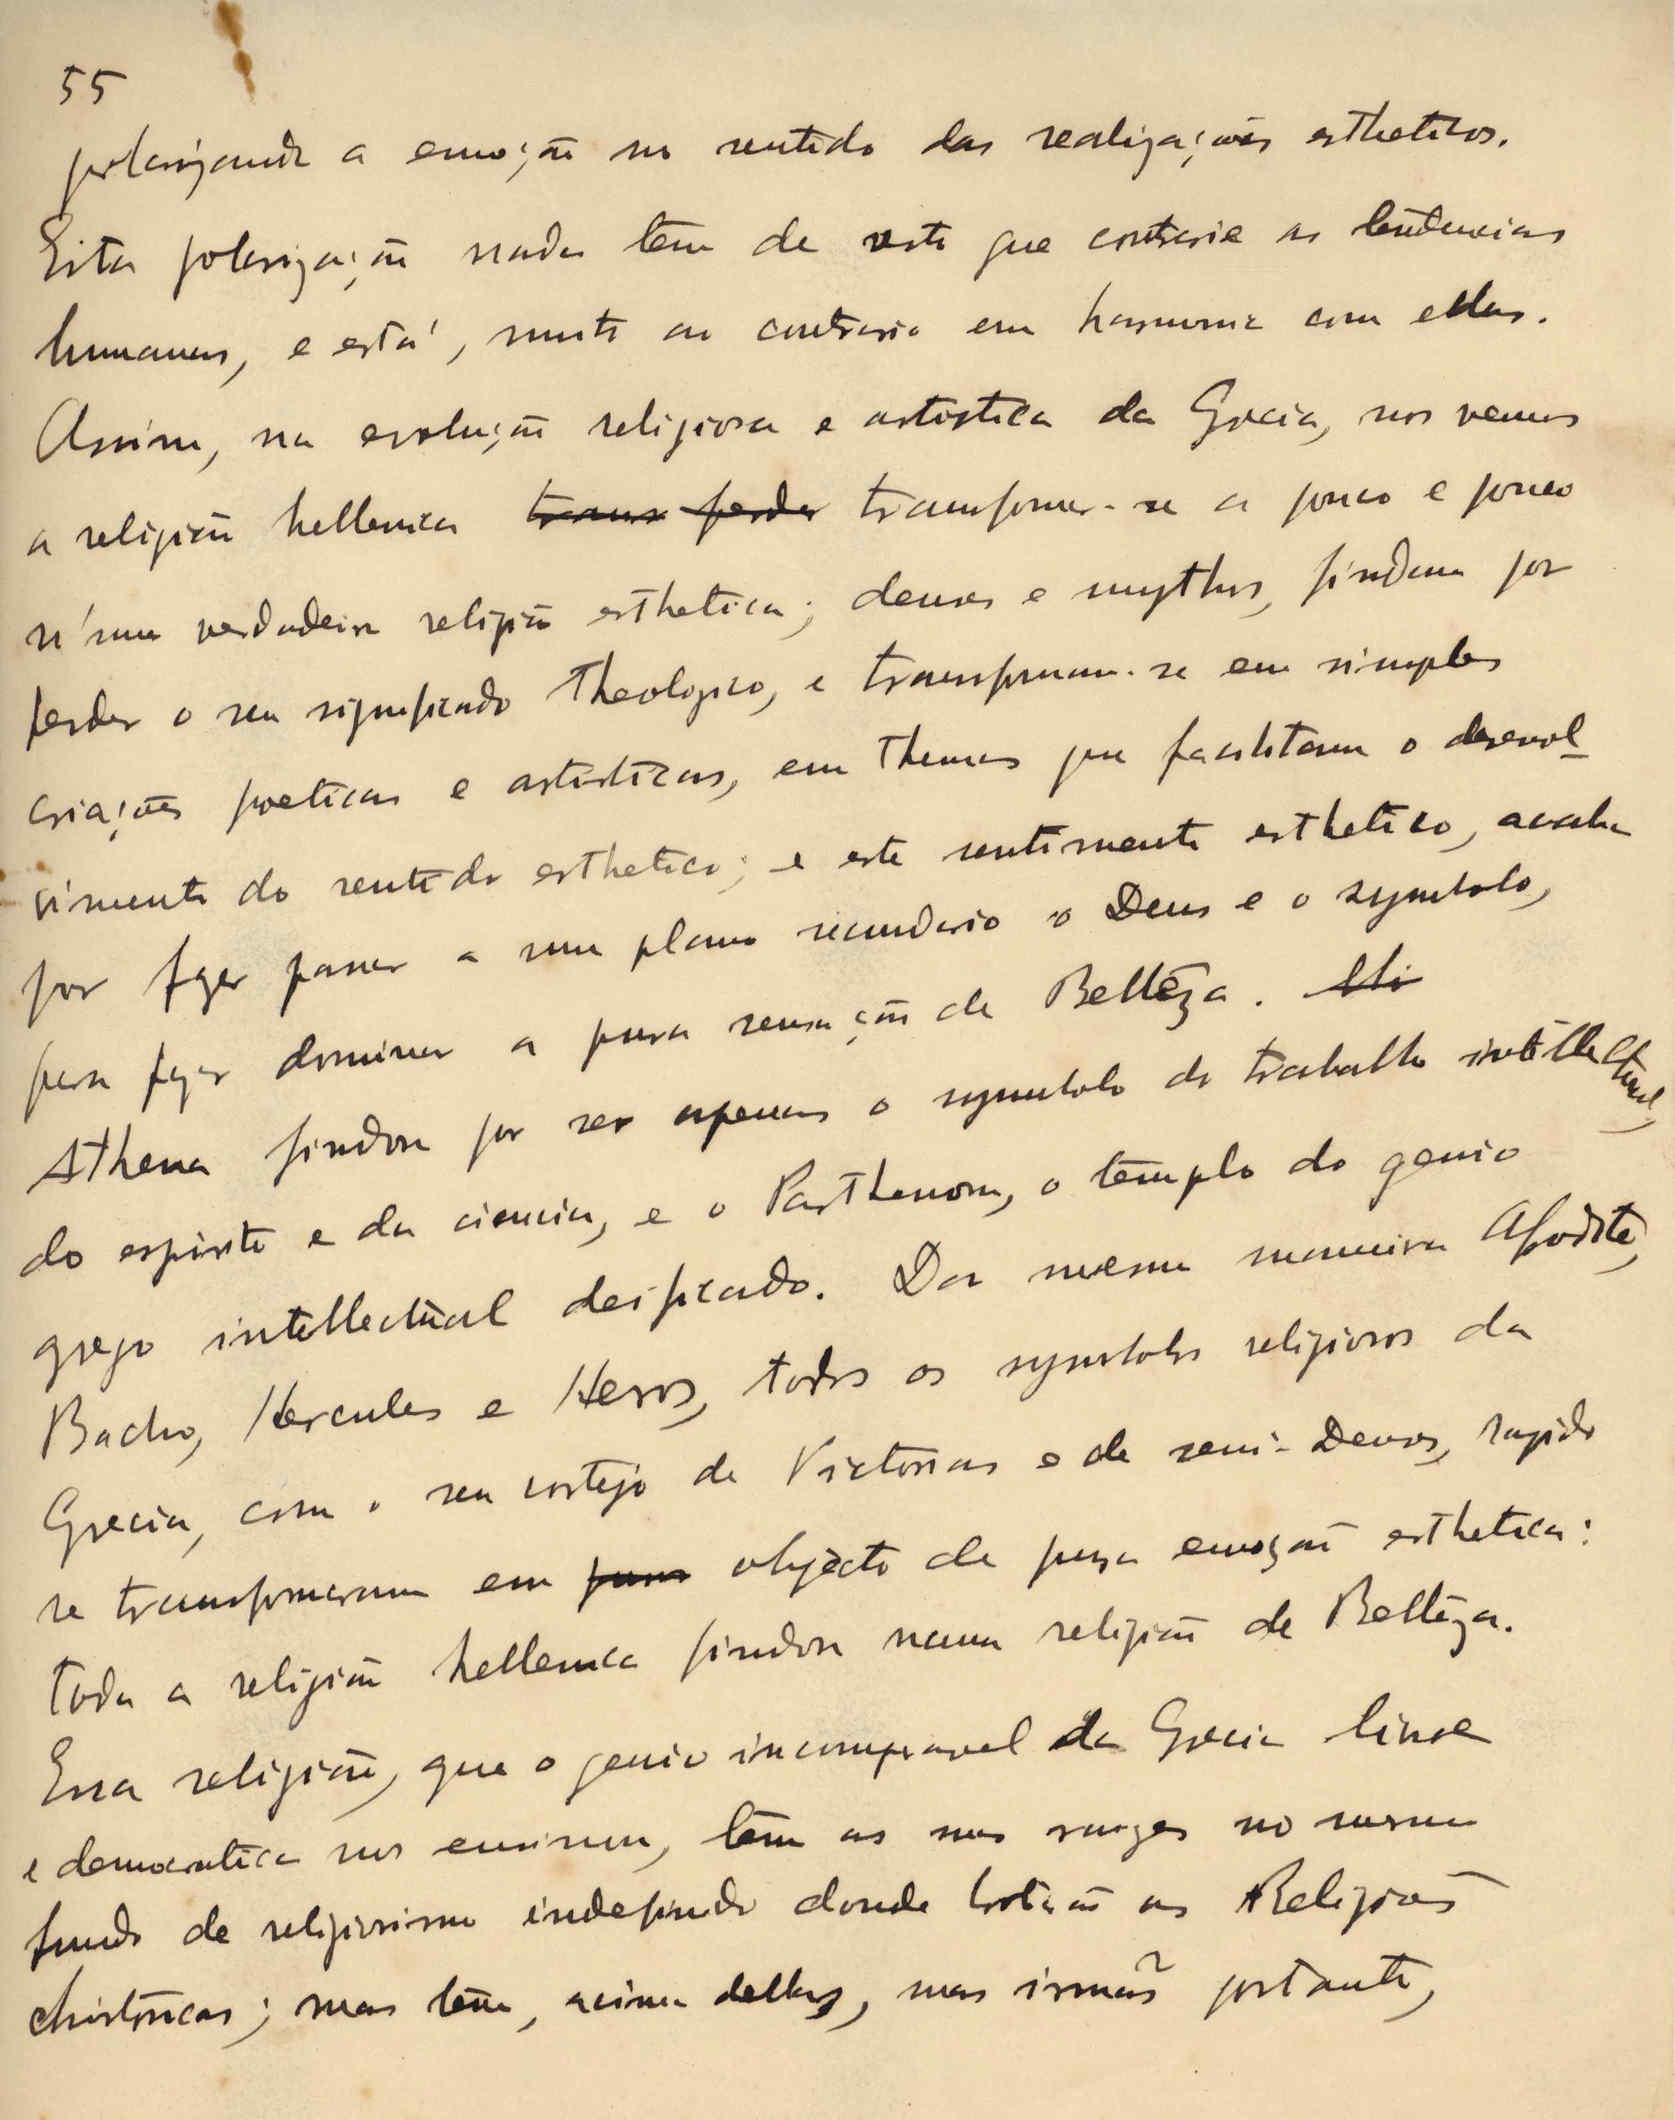 55
polarizando a emoção no sentido das realizações estheticas.
Esta polarização nada tem de resto que contrarie as tendencias
humanas, e está, muito ao contrario em harmonia com ellas.
Assim, na evolução religiosa e artistica da Grecia, nos vemos
a religião hellenica trans perder transformar-se a pouco e pouco
n'uma verdadeira religião esthetica; deuses e mythos, findam por
perder o seu significado theologico, e transformam-se em simples
criações poeticas e artisticas, em themas que facilitam o desenvol-
vimento do sentido esthetico; e este sentimento esthetico, acaba
por fazer passar a um plano secundario o Deus e o symbolo,
para fazer dominar a pura sensação de Bellêza.
Athena findou por ser apenas o symbolo do trabalho intellectual,
do espirito e da ciencia, e o Parthenon, o templo do genio
grego intellectual deificado. Da mesma maneira Afrodite,
Bacho, Hercules e Heros, todos os symbolos religiosos da
Grecia, com o seu cortejo de Victorias e de semi-Deuses, rapido
se transformaram em puro objecto de pura emoção esthetica:
toda a religião hellenica findou numa religião de Bellêza.
Essa religião, que o genio incomparavel da Grecia livre
e democratica nos ensinou, têm as suas raizes no mesmo
fundo de religiosismo indefinido donde brotarão as Religiões
christóricas; mas têm, acima dellas, suas irmãs portanto,